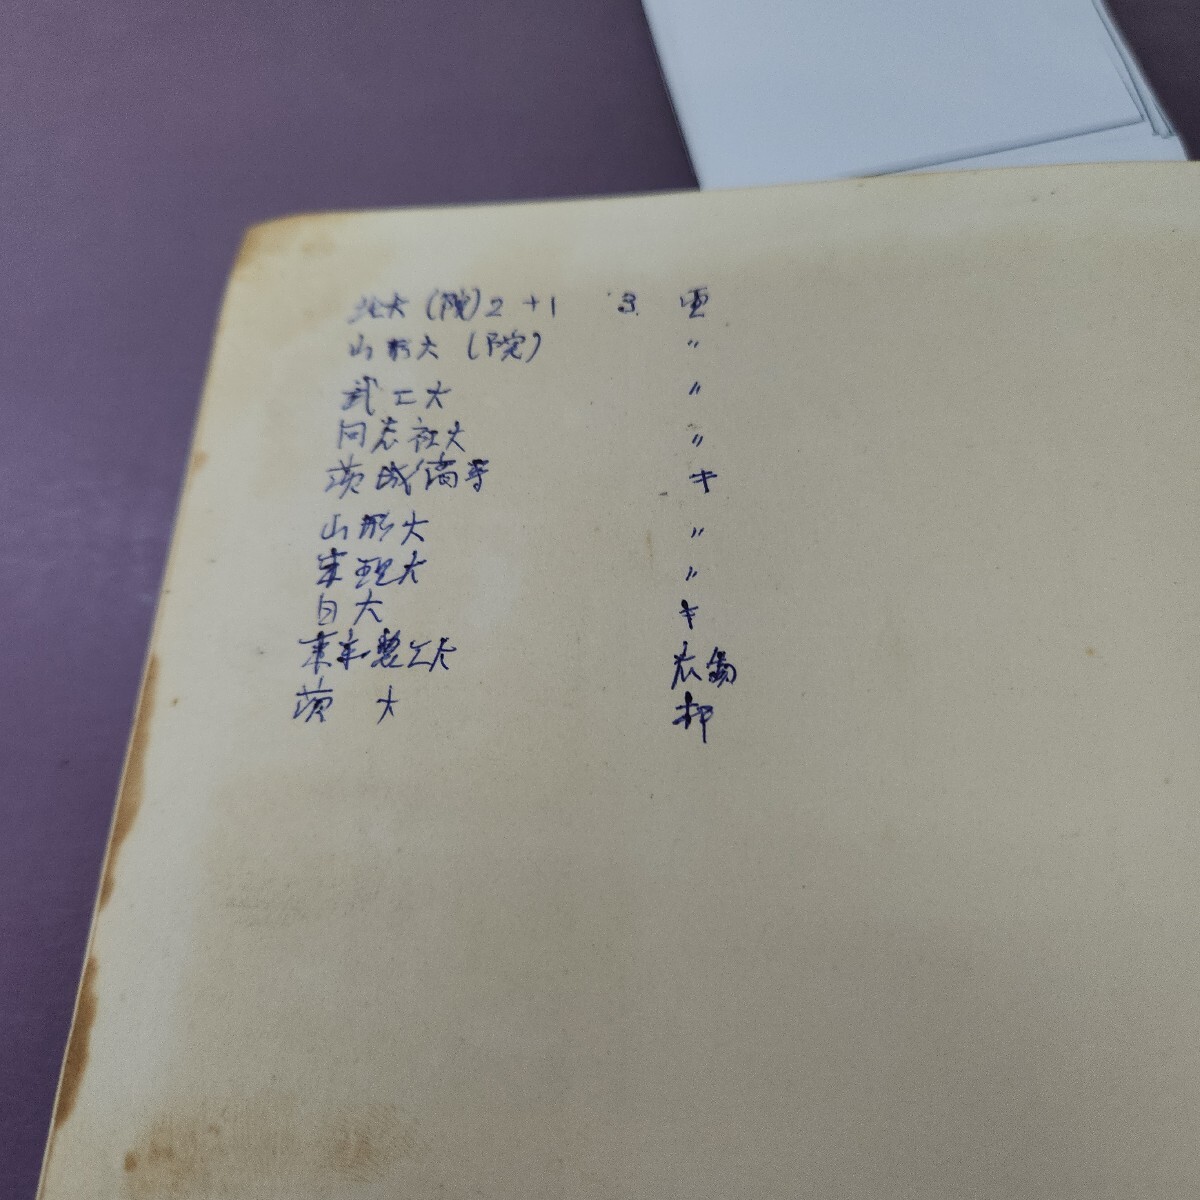 北大(院)2+1 3
山形大(院) 〃
武工大 〃
同志社大 〃
茨城高専 キ
山形大 〃
東理大 〃
日大 キ
工大
茨 大